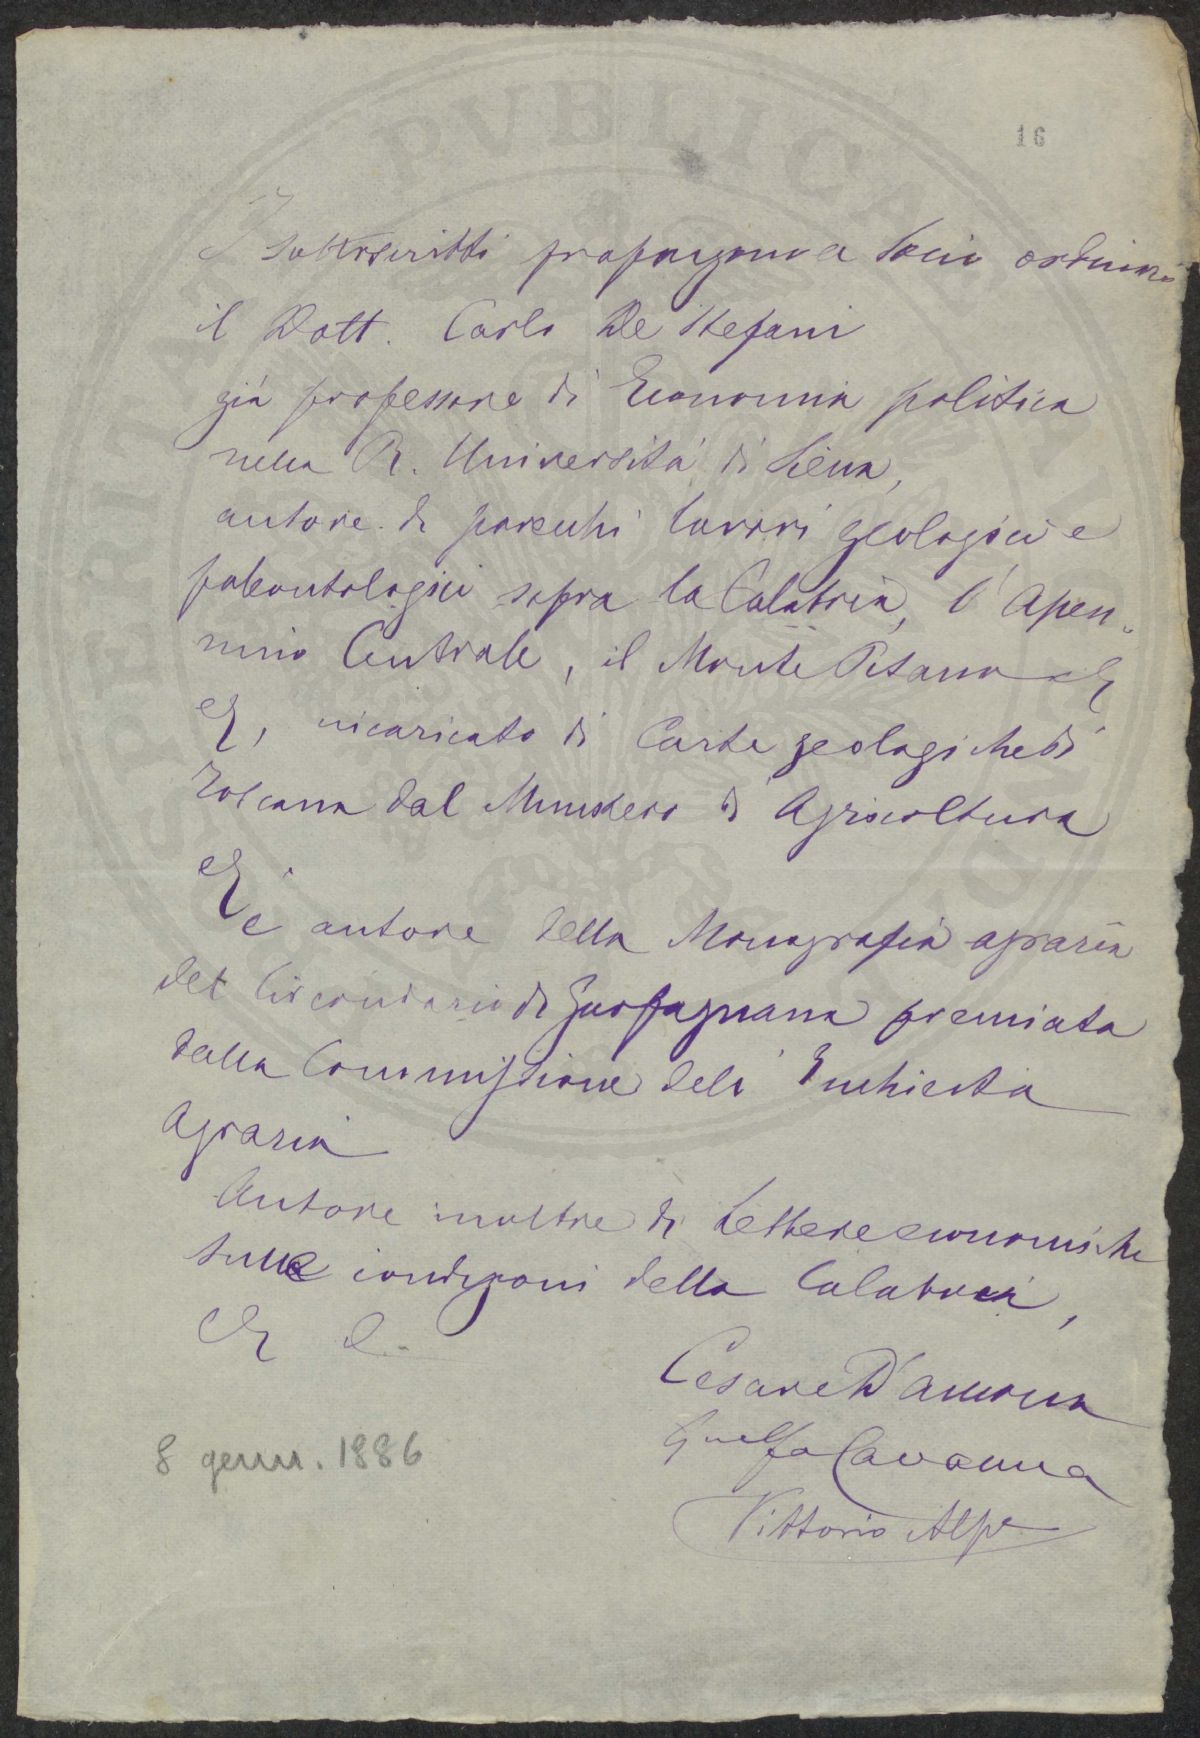 16
I sottoscritti propongono a Socio ordinario
il Dott. Carlo De Stefani
già professore di Economia politica
nella R. Università di Siena,
autore di parecchi lavori geologici e
paleontologici sopra la Calabria, l'Apen-
nino Centrale, il Monte Pisano etc
etc, incaricato di Carte geologiche di
Toscana dal Ministero di Agricoltura
etc
è autore della Monografia agraria
del Circondario di Garfagnana premiata
dalla Commissione dell'Inchiesta
Agraria
Autore inoltre di Lettere economiche
sulle condizioni della Calabria,
etc
Cesare D'Ancona
Guelfo Cavanna
Vittorio Alpe
8 genn. 1886